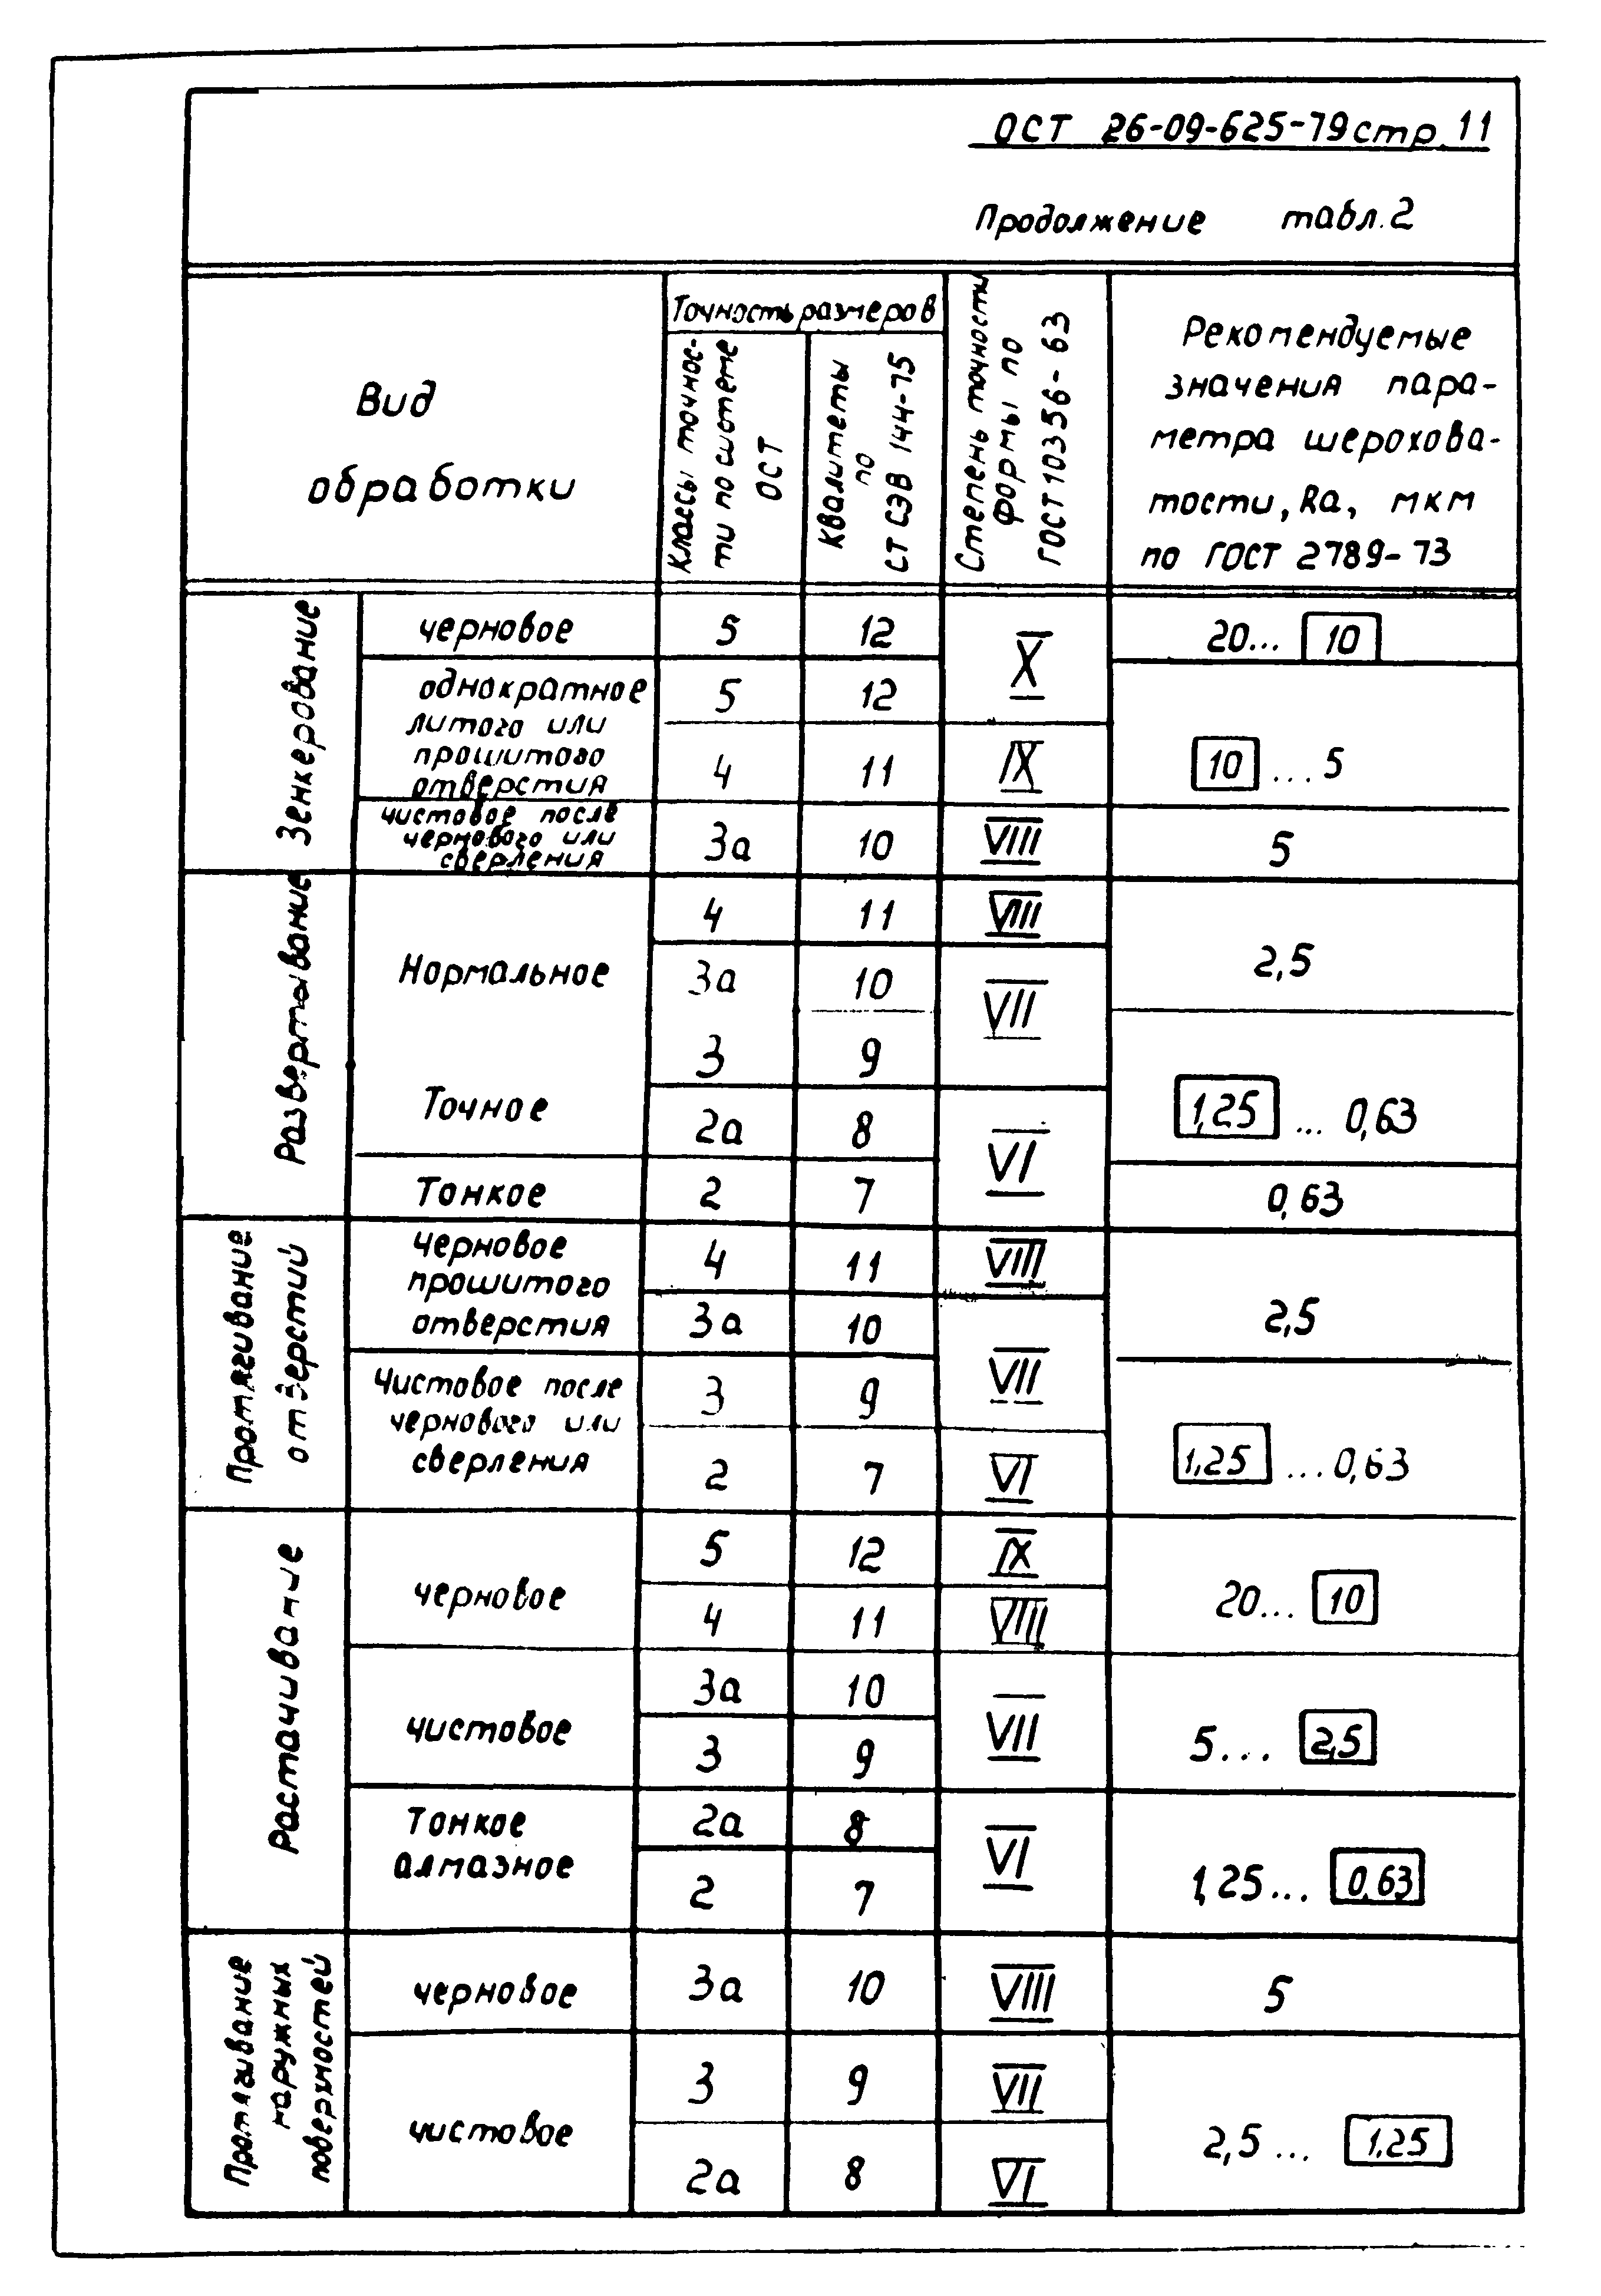 ОСТ 26-09-625-79 стр. 11
Продолжение табл. 2
Вид
обработки
Точность размеров
Классы точнос-
ти по системе
ОСТ
Квалитеты
по
СТ СЭВ 144-75
Степень точности
формы по
ГОСТ 10356-63
Рекомендуемые
значения пара-
метра шерохова-
тости, Ra, мкм
по ГОСТ 2789-73
Зенкерование
черновое 5 12 X 20... 10
однократное
литого или
прошитого
отверстия
5 12
4 11 IX 10 ...5
чистовое после
чернового или
сверления
3а 10 VIII 5
Развертывание
Нормальное
4 11 VIII
3а 10 VII 2,5
Точное
3 9
2а 8 VI 1,25 ... 0,63
Тонкое 2 7 0,63
Протягивание
отверстий
черновое
прошитого
отверстия
4 11 VIII
3а 10 2,5
Чистовое после
чернового или
сверления
3 9 VII
2 7 VI 1,25 ...0,63
Растачивание
черновое
5 12 IX
4 11 VIII 20... 10
чистовое
3а 10 VII
3 9 5... 2,5
Тонкое
алмазное
2а 8 VI
2 7 1,25... 0,63
Протягивание
наружных
поверхностей
черновое 3а 10 VIII 5
чистовое
3 9 VII
2а 8 VI 2,5... 1,25